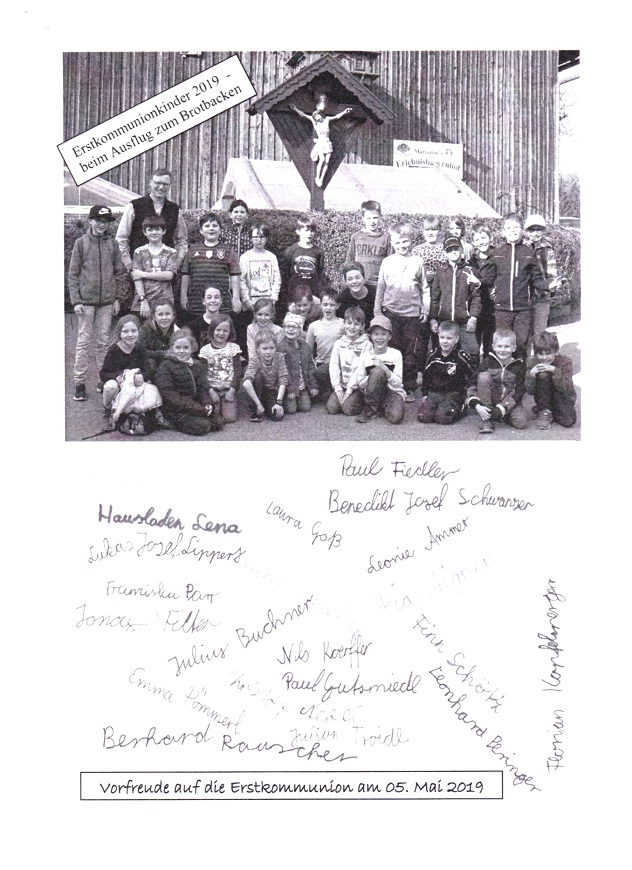 Erstkommunionkinder 2019 -
beim Ausflug zum Brotbacken
Erlebnisbauernhof
Paul Fiedler
Benedikt Josef Schwanzer
Hausladen Lena
Laura Goß
Lukas Josef Lippert
Leonie Ammer
Franziska Parr
Jonas Felter
Julius Buchner
Finn Schötz
Nils Koerffer
Florian
Paul Gutsmiedl
Emma Pommerl
Leonhard Peringer
Julian Troidl
Bernhard Rauscher
Vorfreude auf die Erstkommunion am 05. Mai 2019